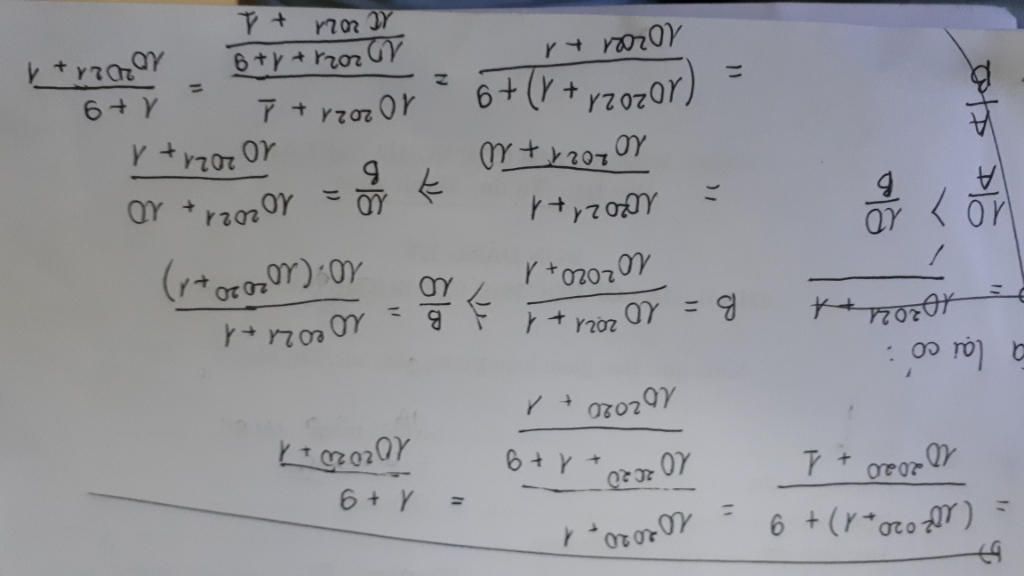 b)
= (10²⁰²⁰+1)+9 / 10²⁰²⁰+1 = 10²⁰²⁰+1 / 10²⁰²⁰+1+9 / 10²⁰²⁰+1 = 1+9 / 10²⁰²⁰+1
a lại có:
= 10²⁰²¹+1 / B = 10²⁰²¹+1 / 10²⁰²⁰+1 ⇒ B/10 = 10²⁰²¹+1 / 10.(10²⁰²⁰+1)
10/A > 10/B = 10²⁰²¹+1 / 10²⁰²¹+10 ⇒ 10/B = 10²⁰²¹+10 / 10²⁰²¹+1
A/B = (10²⁰²¹+1)+9 / 10²⁰²¹+1 = 10²⁰²¹+1 / 10²⁰²¹+1+9 / 10²⁰²¹+1 = 1+9 / 10²⁰²¹+1